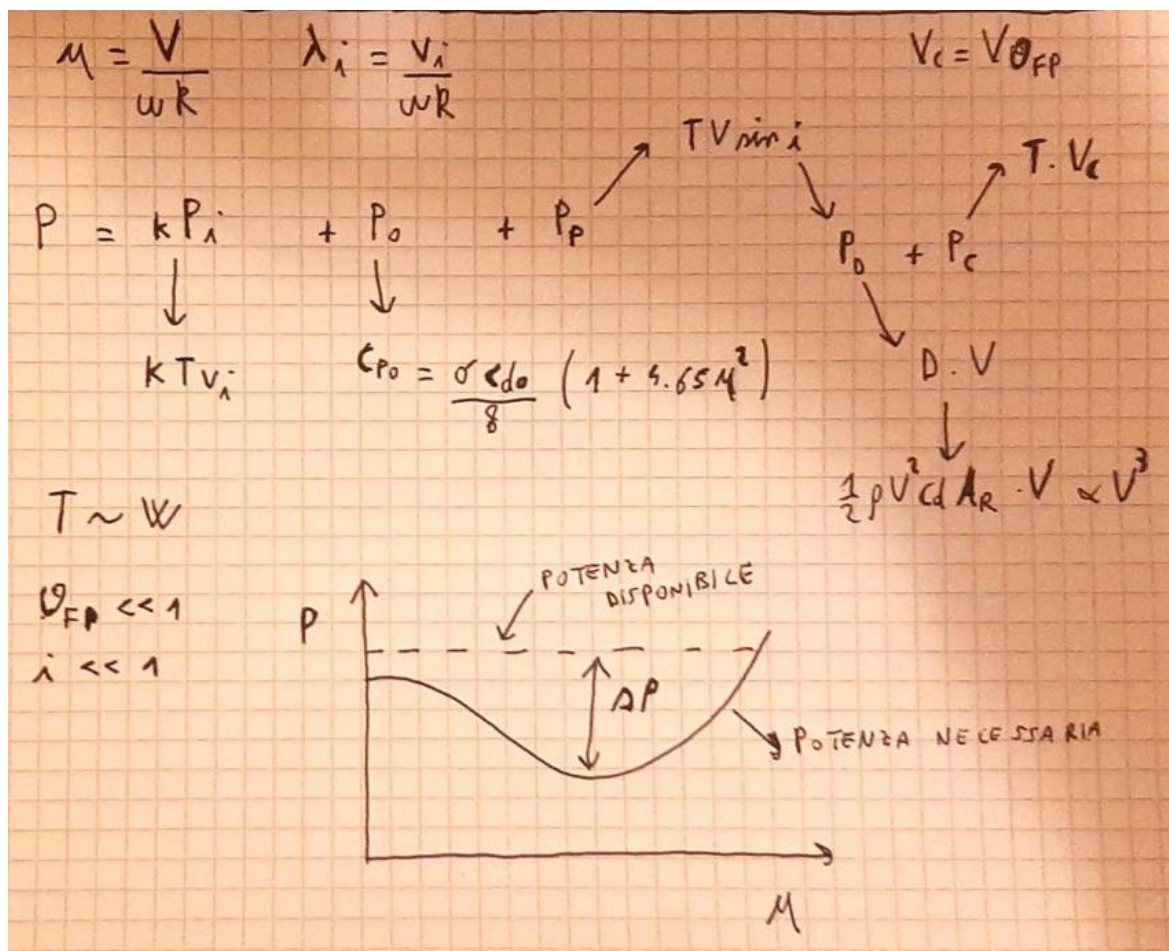 μ = V/ωR λi = vi/ωR Vc = VθFP
TV sin i
T · Vc
P = kPi + P0 + PP
PD + PC
kTvi CP0 = σ cd0/8 (1 + 4.65μ²)
D · V
1/2 ρV² Cd AR · V ∝ V³
T ~ W
θFP << 1
i << 1
POTENZA
DISPONIBILE
P
ΔP
POTENZA NECESSARIA
μ